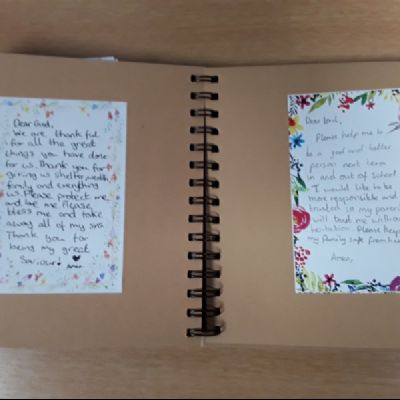 Dear God,
We are thankful
for all the great
things you have done
for us. Thank you for
giving us shelter, wealth,
family and everything
us. Please protect me
and me. Please,
bless me and take
away all of my sins
Thank you for
being my great
Saviour!
Amen
Dear Lord,
Please help me to
be a good and better
person next term
in and out of school.
I would like to be
more responsible and
trusted so my parents
will trust me without
hesitation. Please keep
my family safe from
Amen,